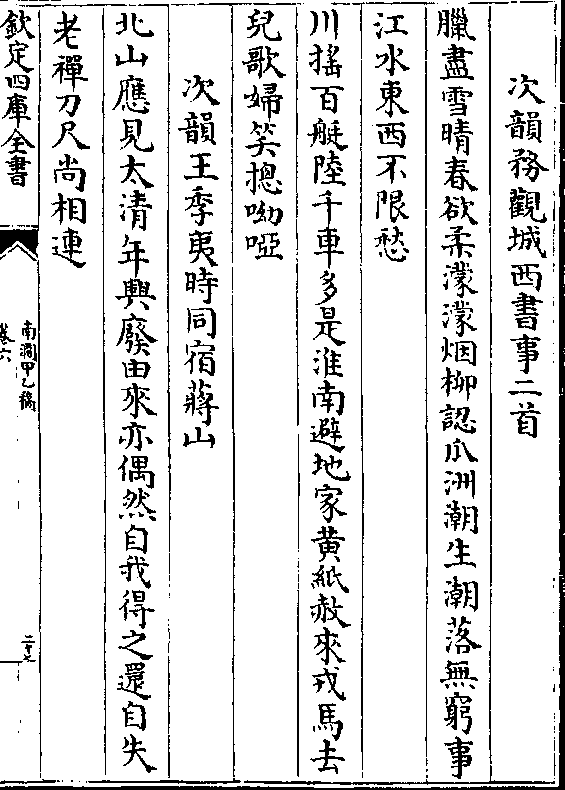 次韻務觀城西書事二首
臘盡雪晴春欲柔濛濛烟柳認爪洲潮生潮落無窮事
江水東西不限愁
川搖百艇陸千車多是淮南避地家黄紙赦來戎馬去
兒歌婦笑揔呦啞
次韻王季夷時同宿蔣山
北山應見太清年興廢由來亦偶然自我得之還自失
老禪刀尺尚相連
欽定四庫全書
南澗甲乙稿
卷六
二十七